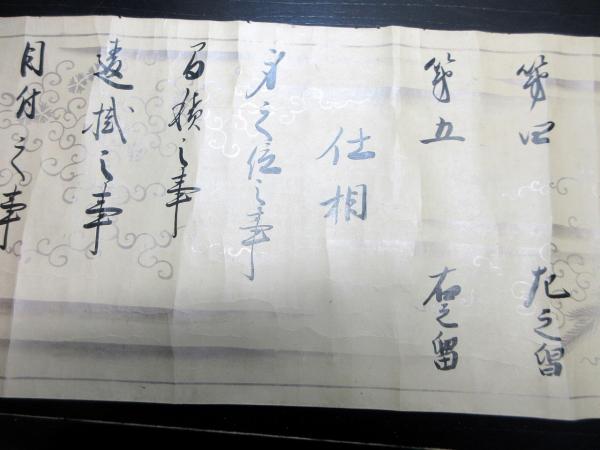 第四 左之留
第五 右之留
仕相
身之位之事
間積之事
遠掛之事
目付之事